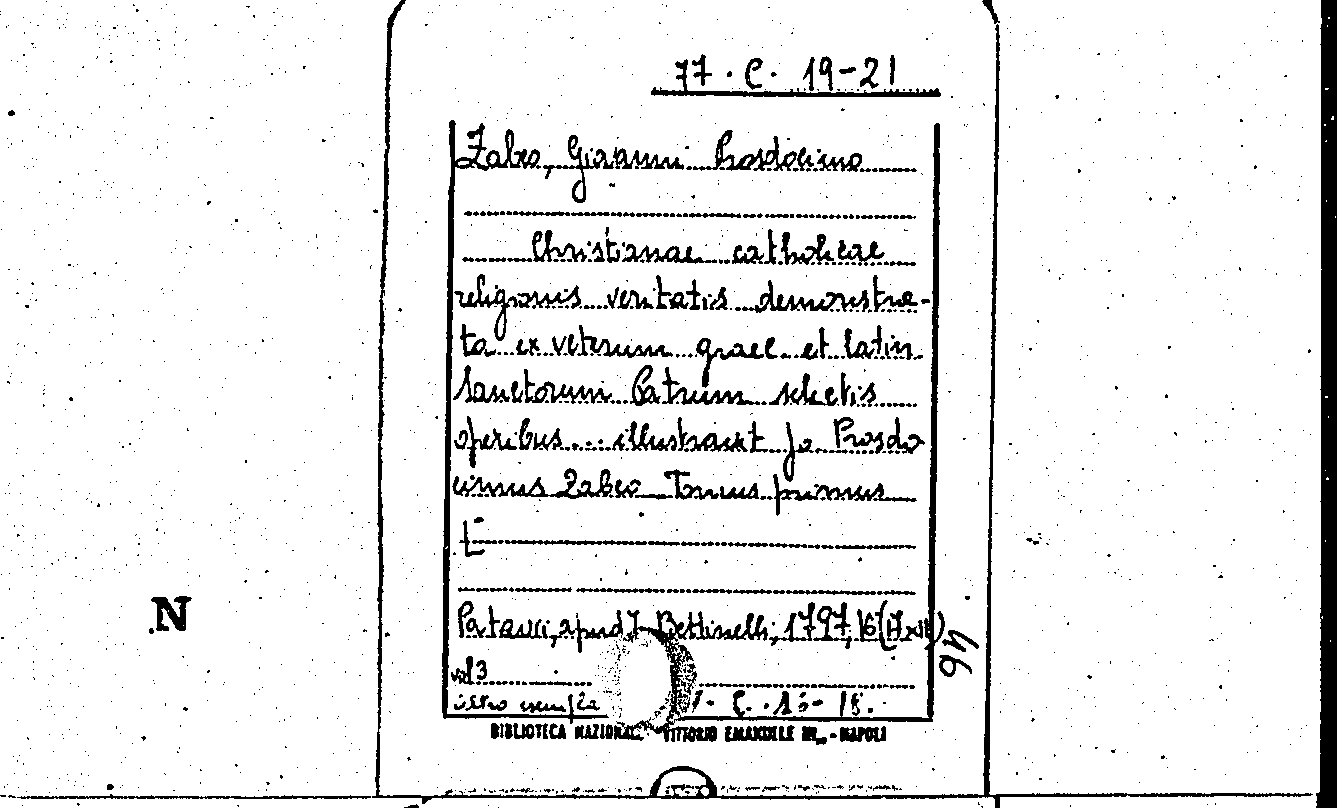 77. C. 19-21
Zabeo, Giovanni Prosdocimo
Christianae catholicae
religionis veritatis demonstra-
ta ex veterum graec. et latin.
Sanctorum Patrum selectis
operibus... illustravit Jo. Prosdo
cimus Zabeo Tomus primus
Patavii, apud J. Bettinelli, 1797, 16
46
vol 3
altro C. 16-18.
BIBLIOTECA NAZIONALE VITTORIO EMANUELE III - NAPOLI
N